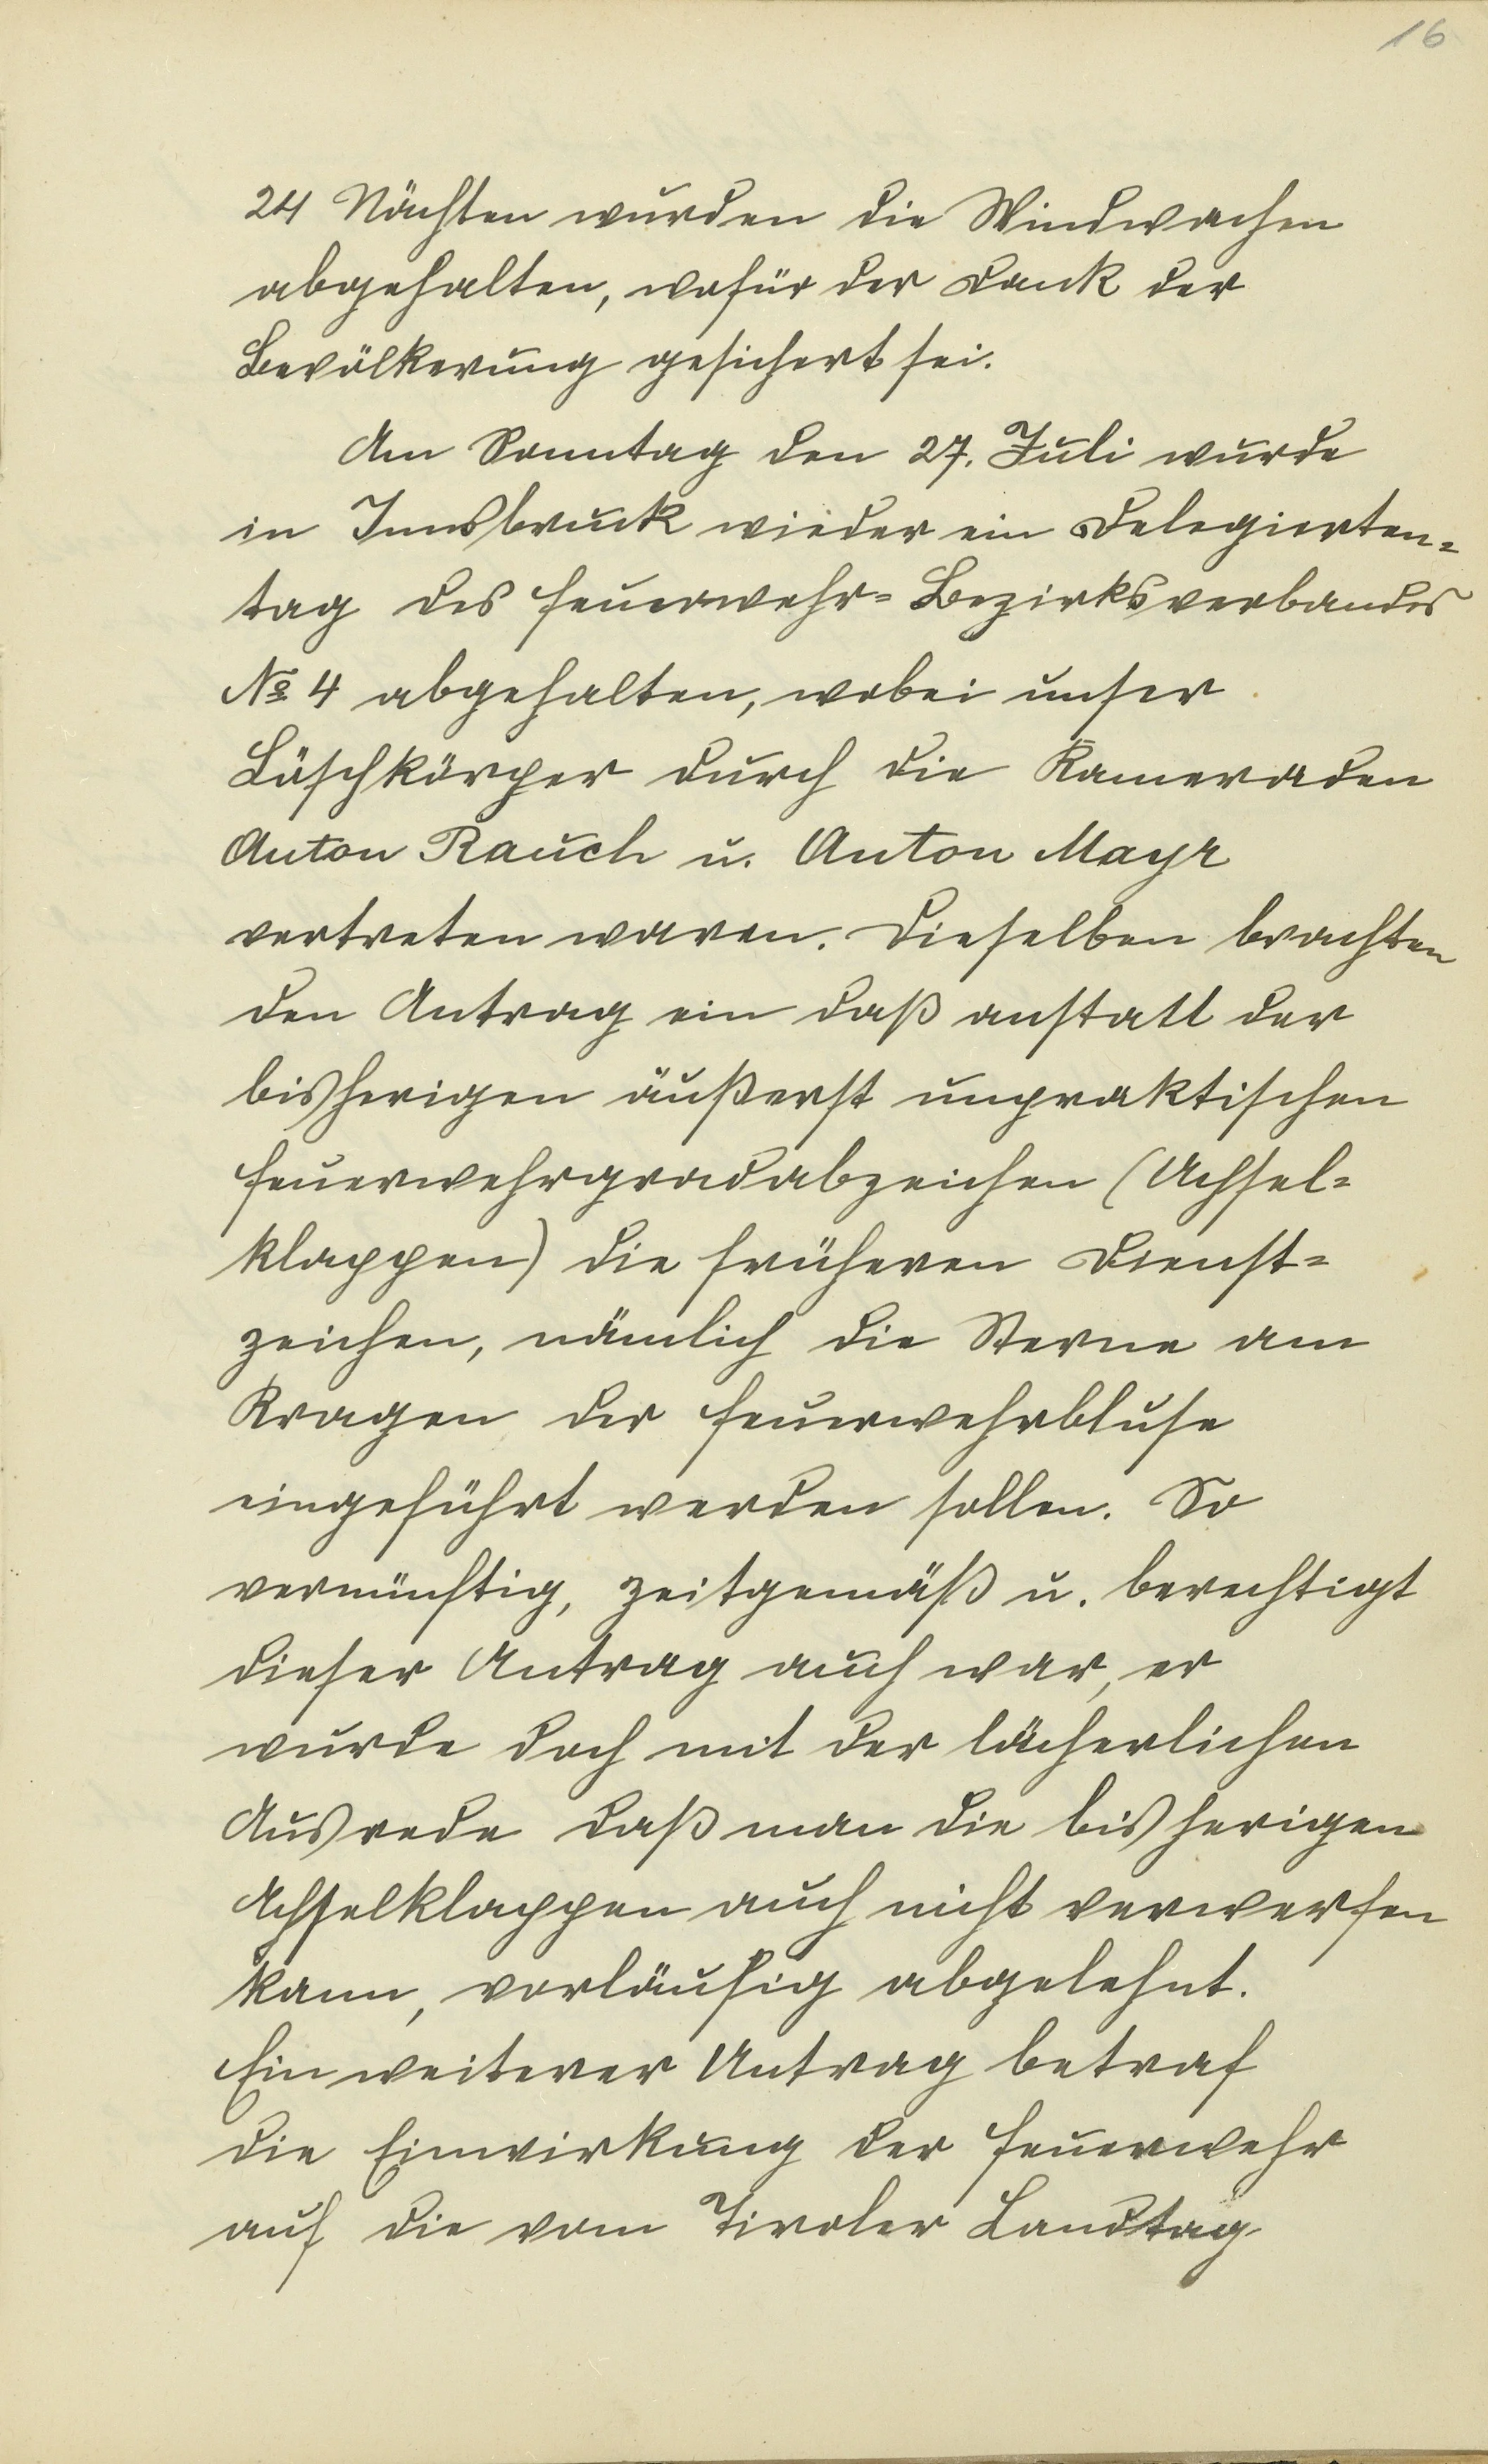 16
24 Nächten wurden die Windwachen
abgehalten, wofür der Dank der
Bevölkerung gesichert sei.
Am Sonntag den 27. Juli wurde
in Innsbruck wieder ein Delegierten=
tag des Feuerwehr=Bezirksverbandes
№ 4 abgehalten, wobei unser
Löschkörper durch die Kameraden
Anton Rauch u. Anton Mayr
vertreten waren. Dieselben brachten
den Antrag ein daß anstatt der
bisherigen äußerst unpraktischen
Feuerwehrgradabzeichen (Achsel=
klappen) die früheren Dienst=
zeichen, nämlich die Sterne am
Kragen der Feuerwehrbluse
eingeführt werden sollen. So
vernünftig, zeitgemäß u. berechtigt
dieser Antrag auch war, er
wurde doch mit der lächerlichen
Ausrede daß man die bisherigen
Achselklappen auch nicht verwerfen
kann, vorläufig abgelehnt.
Ein weiterer Antrag betraf
die Einwirkung der Feuerwehr
auf die vom Tiroler Landtag